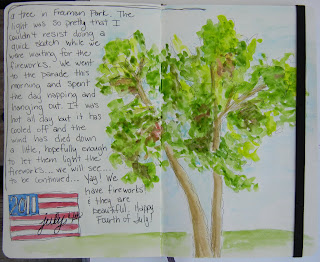 a tree in Freeman Park. The
light was so pretty that I
couldn't resist doing a
quick sketch while we
were waiting for the
fireworks. We went
to the parade this
morning and spent
the day napping and
hanging out. It was
hot all day but it has
cooled off and the
wind has died down
a little, hopefully enough
to let them light the
fireworks... we will see....
to be continued... Yay! We
have fireworks
& they are
beautiful. Happy
Fourth of July!
2011
July 4th